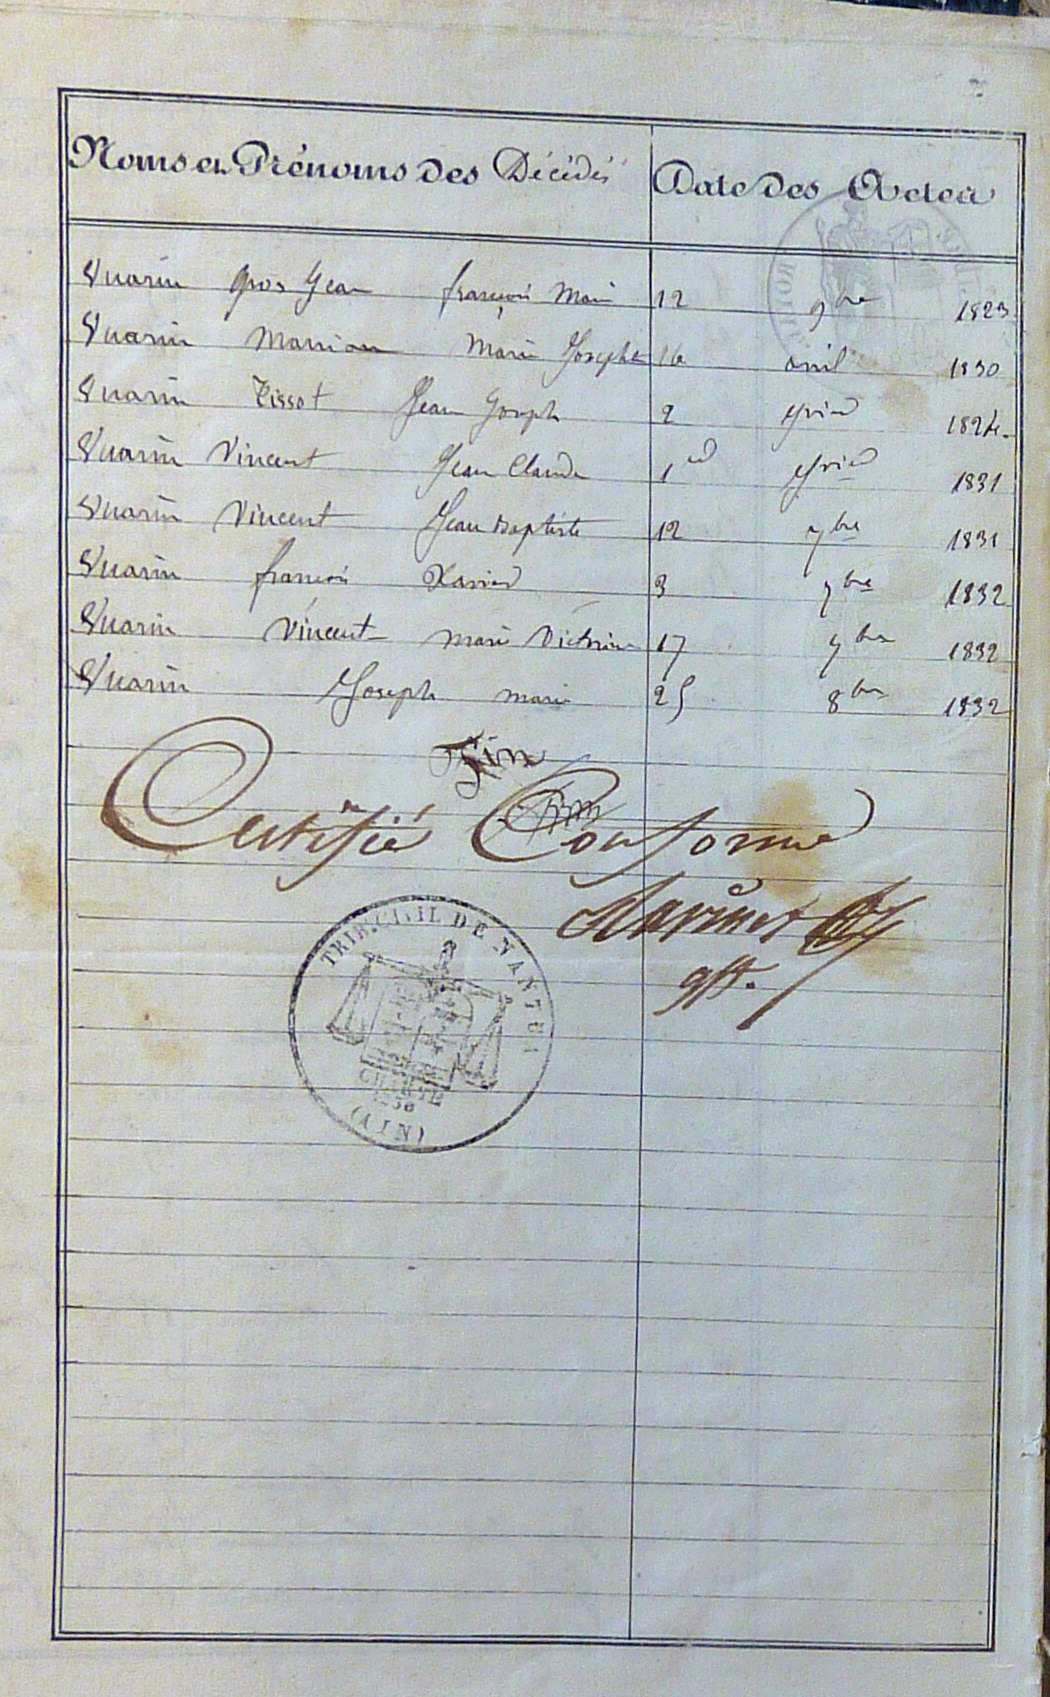 Noms et Prénoms des Décédés
Date des Actes
Vuarin Gros Jean françois Marie 12 9bre 1823
Vuarin Marrion Marie Josephe 16 avril 1830
Vuarin Tissot Jean Joseph 2 1824
Vuarin Vincent Jean Claude 1er 1831
Vuarin Vincent Jean Baptiste 12 1831
Vuarin françois Xavier 3 1832
Vuarin Vincent marie Victorine 17 1832
Vuarin Joseph marie 25 8bre 1832
Fin
Certifié Conforme
gff.
TRIB. CIVIL DE NANTUA
CHARTE
1830
(AIN)